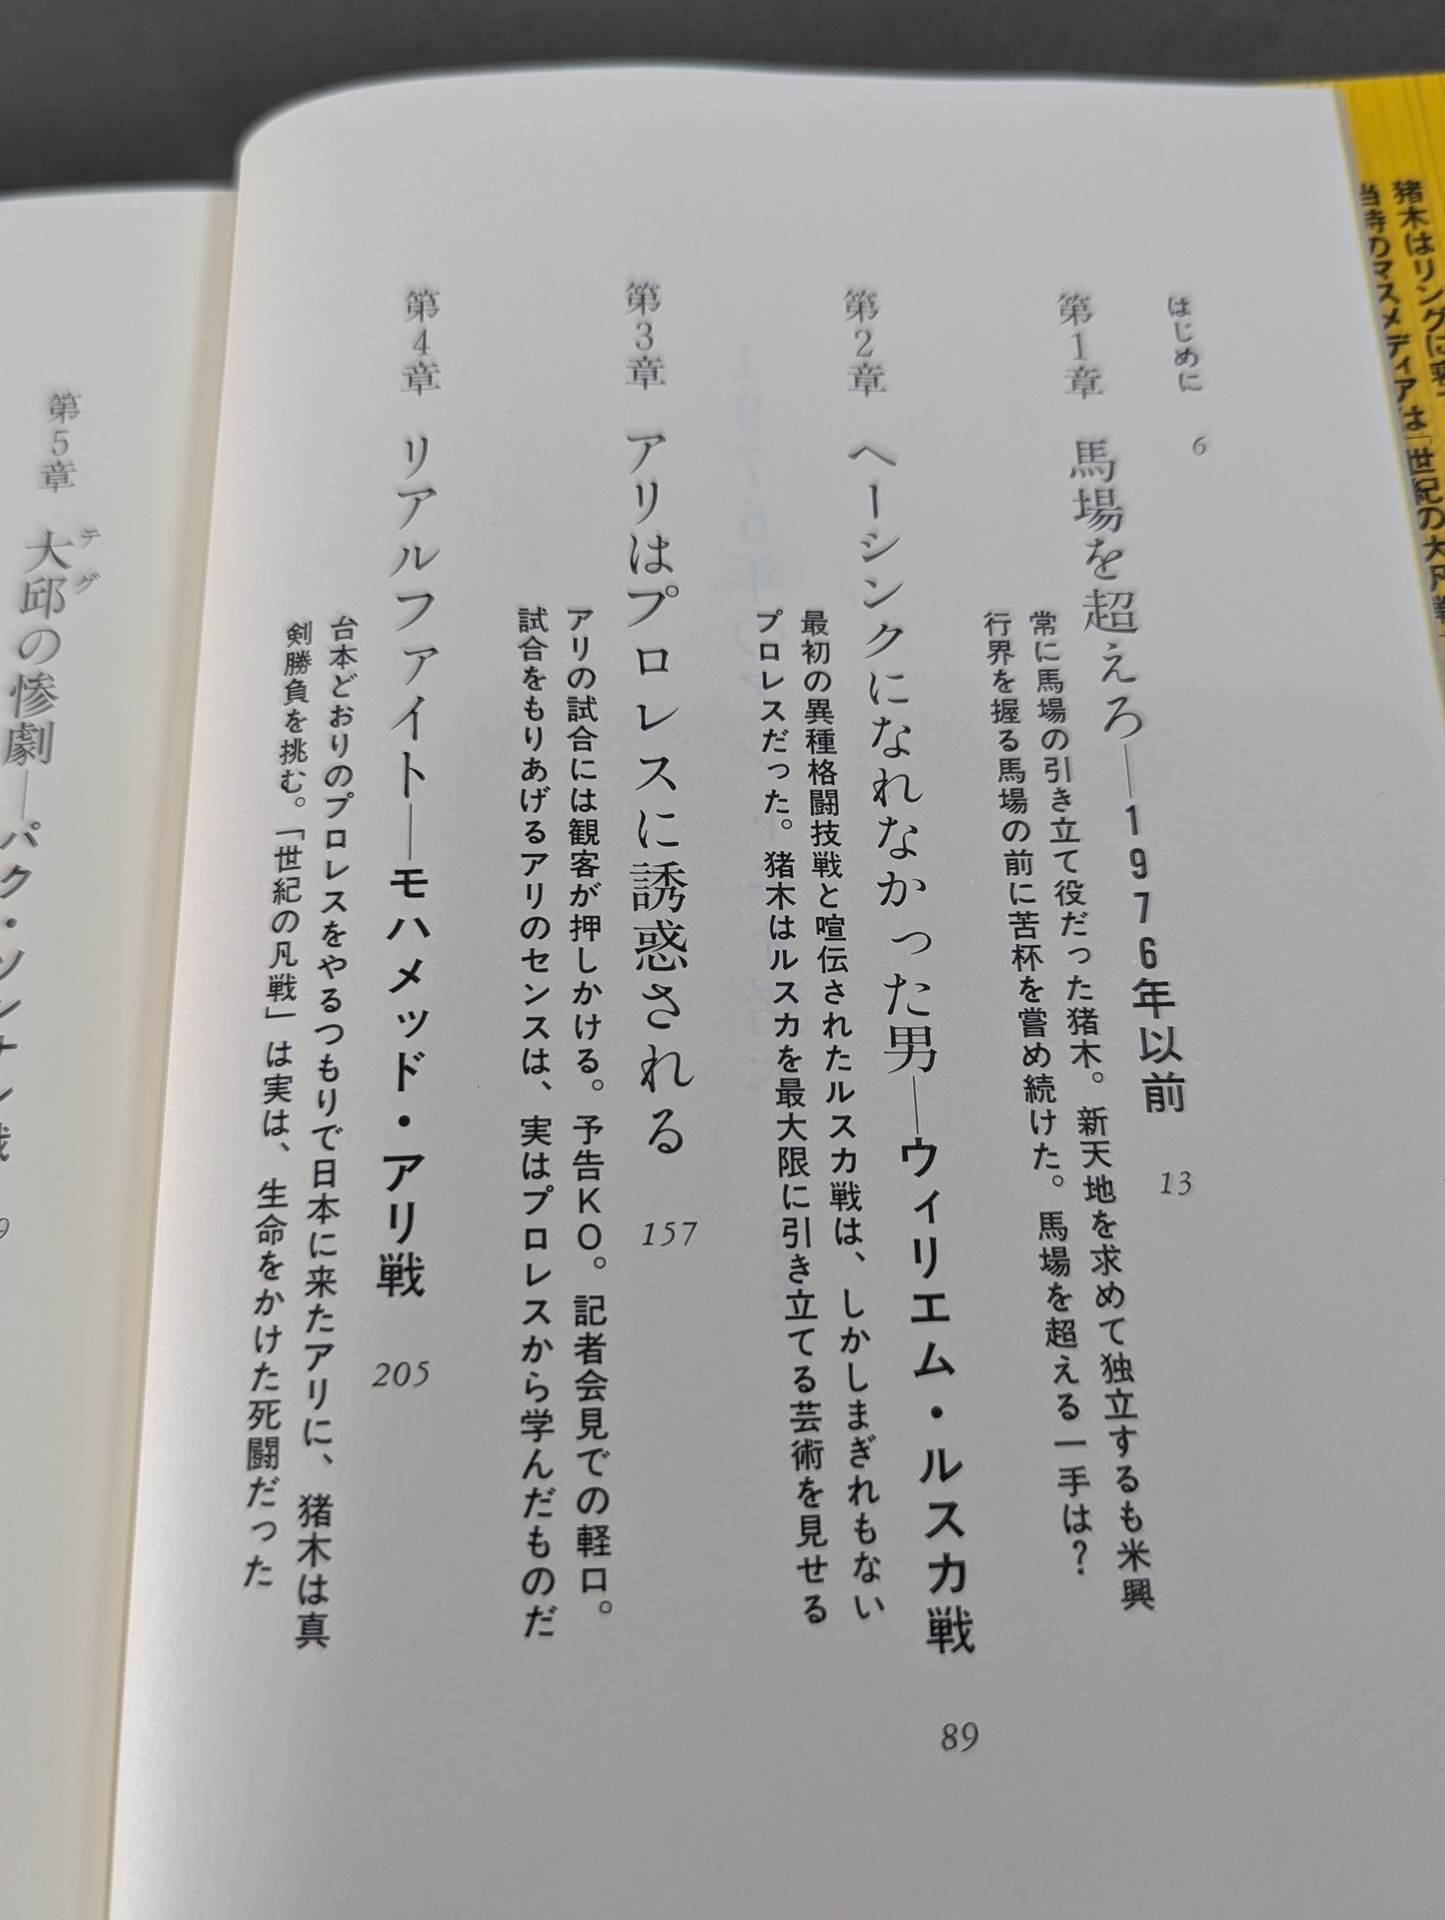 猪木はリングに
当時のマスメディアは「世紀の大凡戦」
はじめに 6
第1章 馬場を超えろ——1976年以前 13
常に馬場の引き立て役だった猪木。新天地を求めて独立するも米興
行界を握る馬場の前に苦杯を嘗め続けた。馬場を超える一手は?
第2章 ヘーシンクになれなかった男——ウィリエム・ルスカ戦 89
最初の異種格闘技戦と喧伝されたルスカ戦は、しかしまぎれもない
プロレスだった。猪木はルスカを最大限に引き立てる芸術を見せる
第3章 アリはプロレスに誘惑される 157
アリの試合には観客が押しかける。予告KO。記者会見での軽口。
試合をもりあげるアリのセンスは、実はプロレスから学んだものだ
第4章 リアルファイト——モハメッド・アリ戦 205
台本どおりのプロレスをやるつもりで日本に来たアリに、猪木は真
剣勝負を挑む。「世紀の凡戦」は実は、生命をかけた死闘だった
第5章 大邱の惨劇——パク・ソンナン戦
テグ